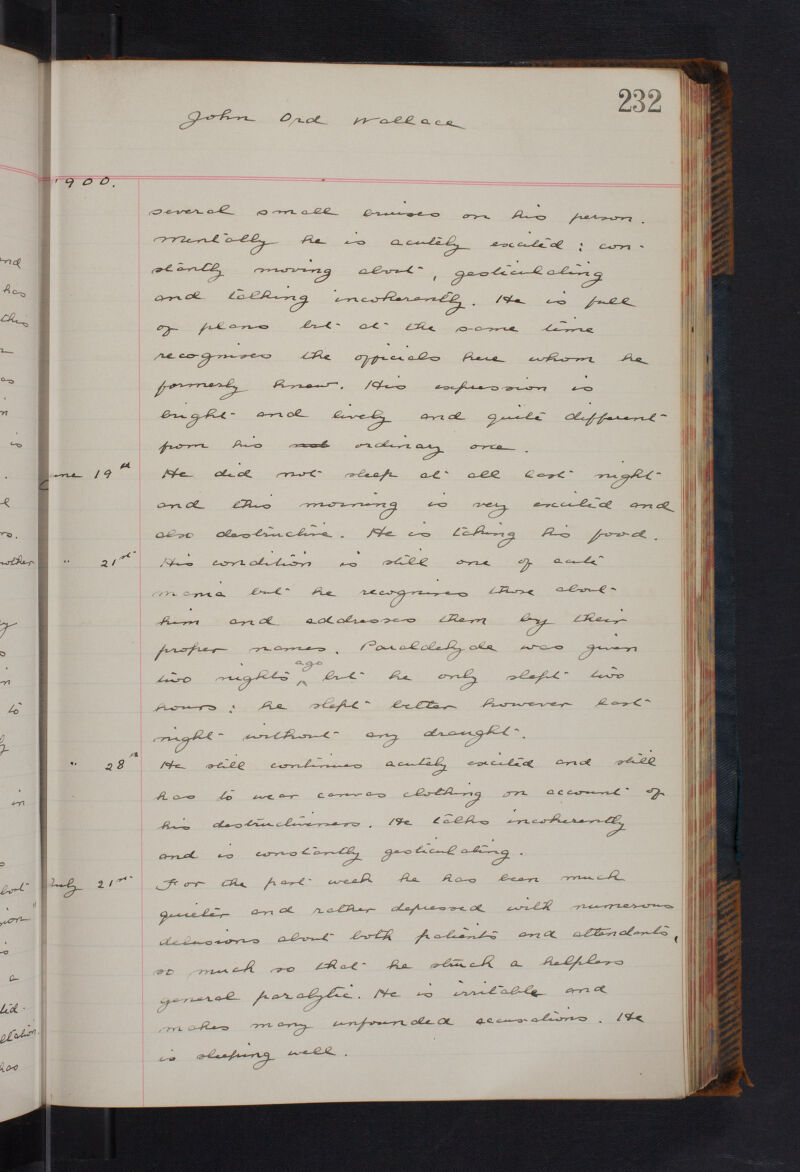 232
John Ord Wallace
1900.
several small bruises on his person.
Mentally he is acutely excited: con-
stantly moving about, gesticulating
and talking incoherently. He is full
of plans but at the same time
recognises the officials here whom he
formerly knew. His expression is
bright and lively and quite different
from his not ordinary one.
June 19th He did not sleep at all last night
and this morning is very excited and
also destructive. He is taking his food.
" 21st His condition is still one of acute
mania but he recognises those about
him and addresses them by their
proper names. Paraldehyde was given
two nights ago but he only slept two
hours: he slept better however last
night without any draught.
" 28th He still continues acutely excited and still
has to wear canvas clothing on account of
his destructiveness. He talks incoherently
and is constantly gesticulating.
July 21st For the past week he has been much
quieter and rather depressed with numerous
delusions about both patients and attendants,
so much so that he struck a helpless
general paralytic. He is irritable and
makes many unfounded accusations. He
is sleeping well.